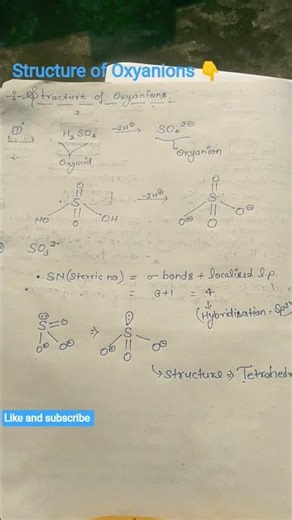 Structure of Oxyanions 👇
Structure of Oxyanions
① H₂SO₄ -2H⊕ → SO₄²⊖
Oxyacid Oxyanion
O O
S -2H⊕ → S
HO O OH O⊖ O O⊖
SO₃²⁻
• SN (Sterric no) = σ bonds + localised l.p.
= 3+1 = 4
(Hybridisation = Sp³
S=O ⇒ S
O⊖ O⊖ O⊖ O O⊖
Structure ⇒ Tetrahed
Like and subscribe